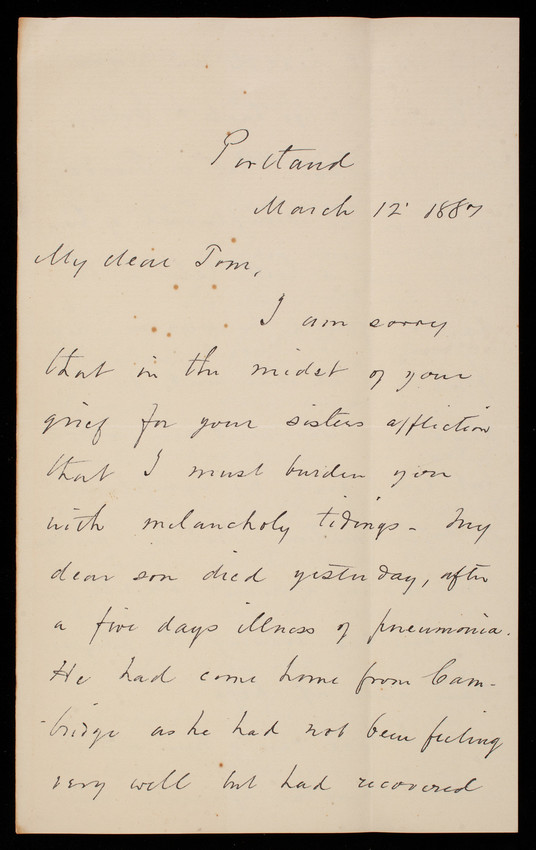 Portland
March 12' 1887
My dear Tom,
I am sorry
that in the midst of your
grief for your sisters affliction
that I must burden you
with melancholy tidings - My
dear son died yesterday, after
a five days illness of pneumonia.
He had come home from Cam-
-bridge as he had not been feeling
very well but had recovered